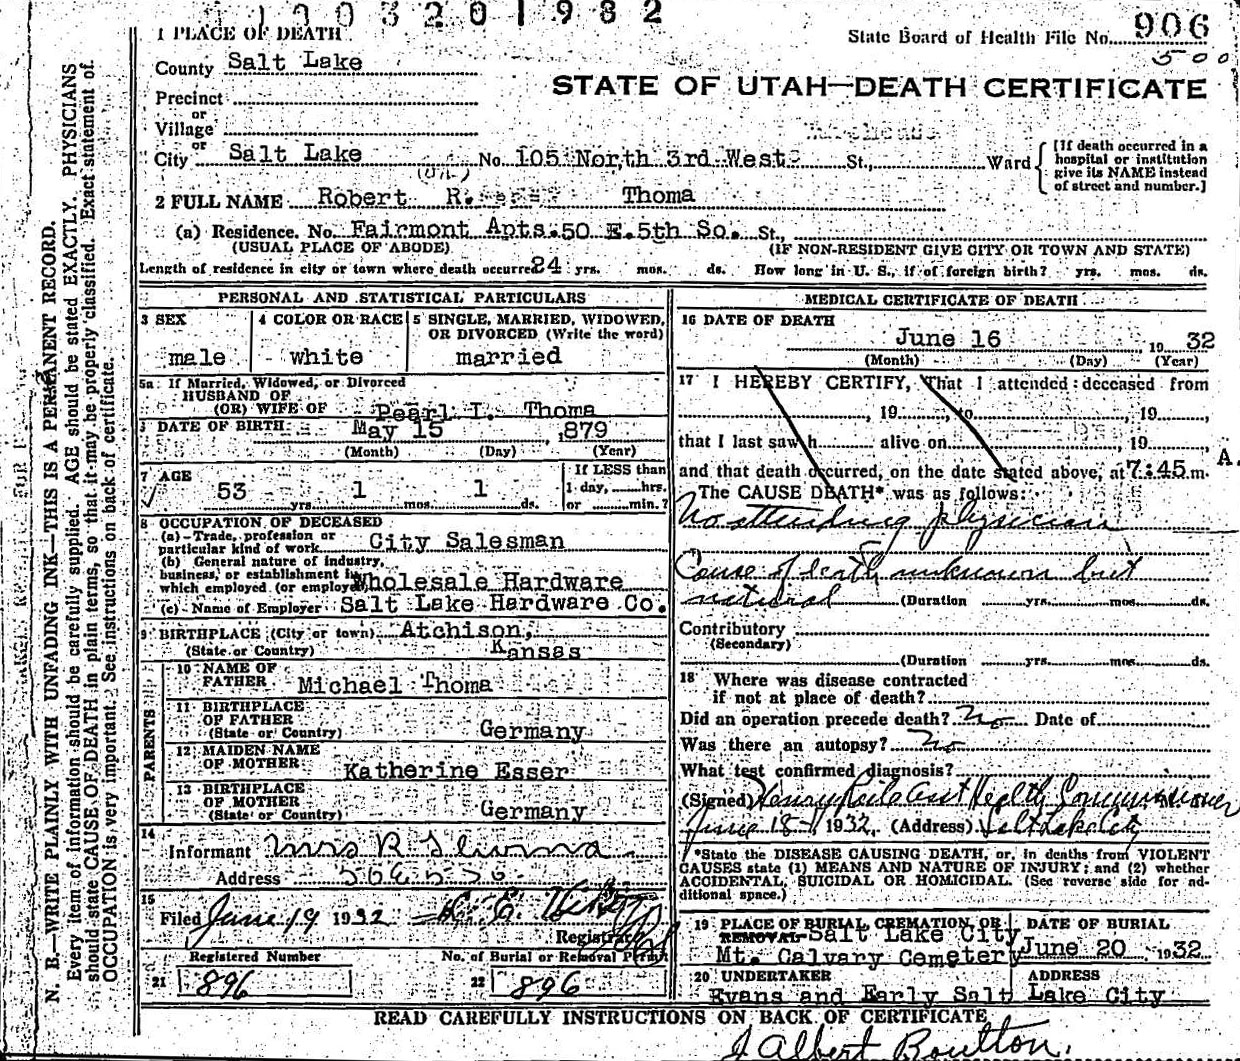 1 0 0 3 2 0 1 9 8 2
906
State Board of Health File No.
500
1 PLACE OF DEATH
County Salt Lake
STATE OF UTAH—DEATH CERTIFICATE
Precinct
or
Village
or
City Salt Lake No. 105 North 3rd West St., Ward
[If death occurred in a hospital or institution give its NAME instead of street and number.]
2 FULL NAME Robert R. Thoma
(a) Residence. No. Fairmont Apts. 50 E. 5th So. St.,
(USUAL PLACE OF ABODE) (IF NON-RESIDENT GIVE CITY OR TOWN AND STATE)
Length of residence in city or town where death occurred 24 yrs. mos. ds. How long in U. S., if of foreign birth? yrs. mos. ds.
PERSONAL AND STATISTICAL PARTICULARS
3 SEX
male
4 COLOR OR RACE
white
5 SINGLE, MARRIED, WIDOWED, OR DIVORCED (Write the word)
married
5a If Married, Widowed, or Divorced
HUSBAND OF
(OR) WIFE OF Pearl I. Thoma
DATE OF BIRTH May 15, 1879
(Month) (Day) (Year)
7 AGE
53 yrs. 1 mos. 1 ds.
If LESS than
1 day, hrs.
or min.?
8 OCCUPATION OF DECEASED
(a) Trade, profession or
particular kind of work City Salesman
(b) General nature of industry,
business, or establishment in
which employed (or employer) Wholesale Hardware
(c) Name of Employer Salt Lake Hardware Co.
9 BIRTHPLACE (City or town) Atchison,
(State or Country) Kansas
PARENTS
10 NAME OF
FATHER Michael Thoma
11 BIRTHPLACE
OF FATHER
(State or Country) Germany
12 MAIDEN NAME
OF MOTHER Katherine Esser
13 BIRTHPLACE
OF MOTHER
(State or Country) Germany
14
Informant Mrs R Thoma
Address 50 E 5 So.
15
Filed June 19 1932
Registrar
Registered Number
No. of Burial or Removal Permit
21 896
22 896
MEDICAL CERTIFICATE OF DEATH
16 DATE OF DEATH
June 16 1932
(Month) (Day) (Year)
17 I HEREBY CERTIFY, That I attended deceased from
, 19 , to , 19 ,
that I last saw h alive on , 19
and that death occurred, on the date stated above, at 7:45 A. m.
The CAUSE DEATH* was as follows:
No attending physician
Cause of death unknown but
natural (Duration yrs. mos. ds.
Contributory
(Secondary)
(Duration yrs. mos. ds.
18 Where was disease contracted
if not at place of death?
Did an operation precede death? No Date of
Was there an autopsy? No
What test confirmed diagnosis?
(Signed) Health Commissioner
June 18 1932, (Address) Salt Lake City
*State the DISEASE CAUSING DEATH, or, in deaths from VIOLENT
CAUSES state (1) MEANS AND NATURE OF INJURY; and (2) whether
ACCIDENTAL, SUICIDAL OR HOMICIDAL. (See reverse side for ad-
ditional space.)
19 PLACE OF BURIAL CREMATION, OR
REMOVAL Salt Lake City
Mt. Calvary Cemetery
DATE OF BURIAL
June 20 1932
20 UNDERTAKER ADDRESS
Evans and Early Salt Lake City
READ CAREFULLY INSTRUCTIONS ON BACK OF CERTIFICATE
J Albert Boulton.
N. B.—WRITE PLAINLY WITH UNFADING INK—THIS IS A PERMANENT RECORD.
Every item of information should be carefully supplied. AGE should be stated EXACTLY. PHYSICIANS
should state CAUSE OF DEATH in plain terms, so that it may be properly classified. Exact statement of
OCCUPATION is very important. See instructions on back of certificate.